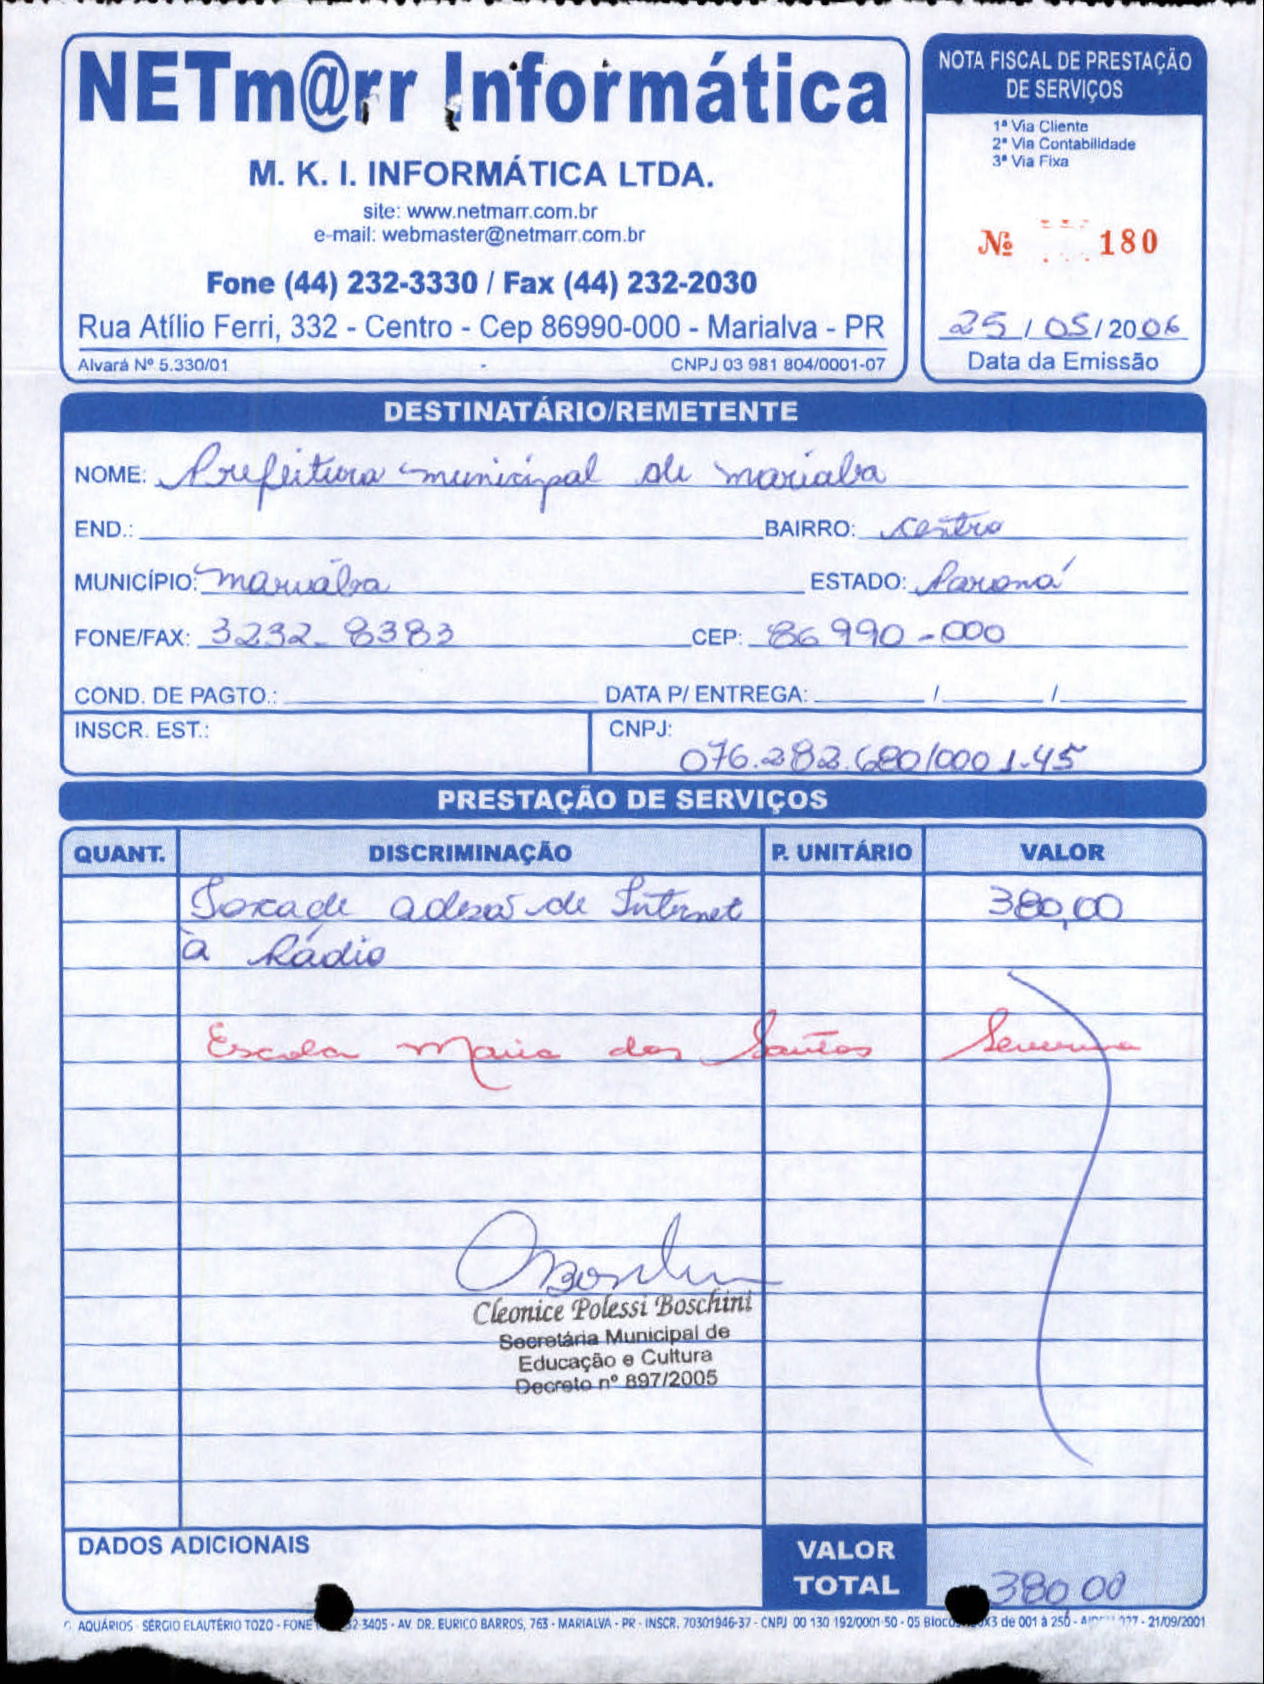 NETm@rr Informática
M. K. I. INFORMÁTICA LTDA.
site: www.netmarr.com.br
e-mail: webmaster@netmarr.com.br
Fone (44) 232-3330 / Fax (44) 232-2030
Rua Atílio Ferri, 332 - Centro - Cep 86990-000 - Marialva - PR
Alvará Nº 5.330/01 CNPJ 03 981 804/0001-07
NOTA FISCAL DE PRESTAÇÃO
DE SERVIÇOS
1ª Via Cliente
2ª Via Contabilidade
3ª Via Fixa
Nº 180
25/05/2006
Data da Emissão
DESTINATÁRIO/REMETENTE
NOME: Prefeitura municipal de marialva
END.: BAIRRO: centro
MUNICÍPIO: marialva ESTADO: Paraná
FONE/FAX: 3232-8383 CEP: 86990-000
COND. DE PAGTO.: DATA P/ ENTREGA: / /
INSCR. EST.: CNPJ:
076.282.680/0001-45
PRESTAÇÃO DE SERVIÇOS
QUANT. DISCRIMINAÇÃO P. UNITÁRIO VALOR
adesão de Internet 380,00
à Rádio
Escola Maria dos Santos Severino
Cleonice Polessi Boschini
Secretária Municipal de
Educação e Cultura
Decreto nº 897/2005
DADOS ADICIONAIS
VALOR
TOTAL 380,00
AQUÁRIOS - SÉRGIO ELAUTÉRIO TOZO - FONE 3405 - AV. DR. EURICO BARROS, 763 - MARIALVA - PR - INSCR. 70301946-37 - CNPJ 00 130 192/0001-50 - 05 Blocos de 001 à 250 - 21/09/2001